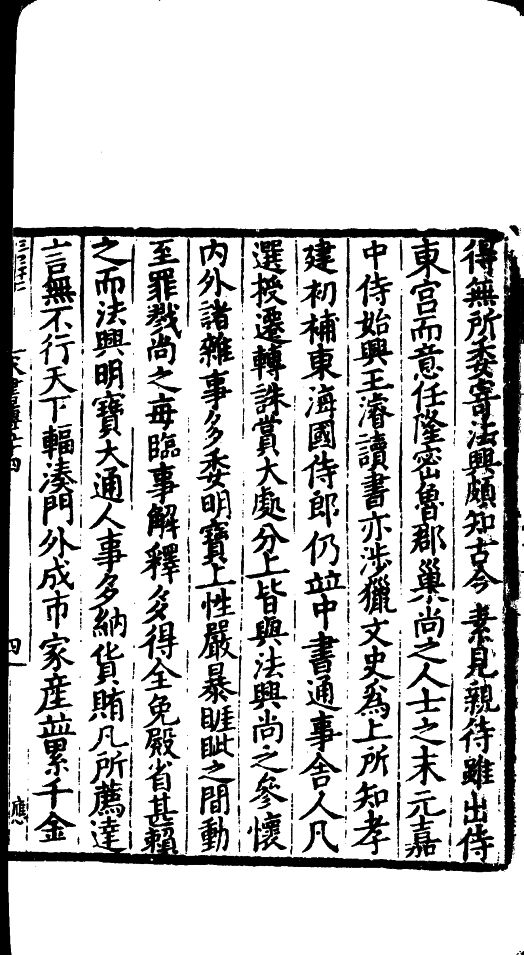 得無所委寄法興頗知古今素見親待雖出侍
東宮而意任隆密魯郡巢尚之人士之末元嘉
中侍始興王濬讀書亦涉獵文史爲上所知孝
建初補東海國侍郎仍並中書通事舍人凡
選授遷轉誅賞大處分上皆與法興尚之參懷
内外諸雜事多委明寶上性嚴暴睚眦之間動
至罪戮尚之每臨事解釋多得全免殿省甚賴
之而法興明寶大通人事多納貨賄凡所薦達
言無不行天下輻湊門外成市家産並累千金
四